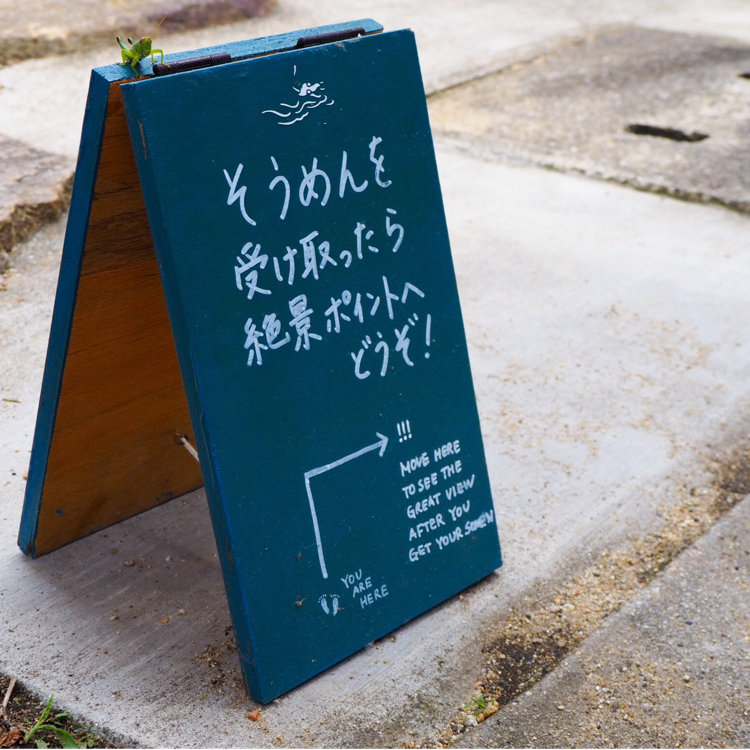 そうめんを
受け取ったら
絶景ポイントへ
どうぞ!
!!!
MOVE HERE
TO SEE THE
GREAT VIEW
AFTER YOU
GET YOUR SOMEN
YOU
ARE
HERE